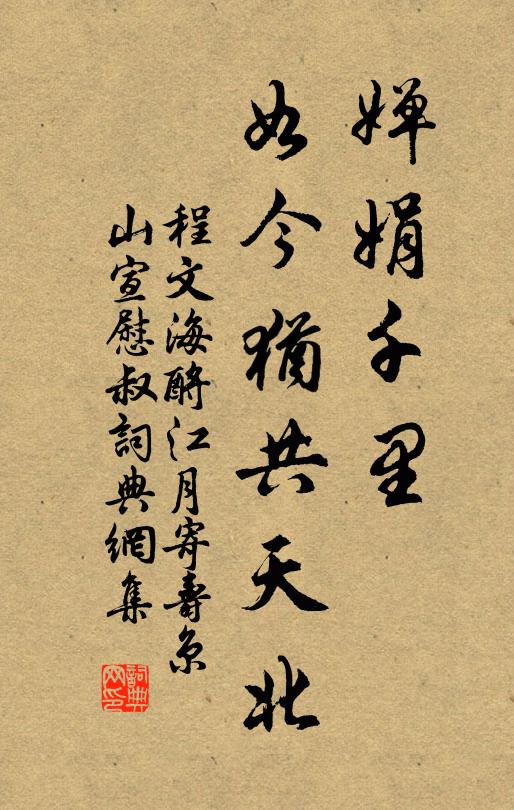 嬋娟千里
如今猶共天北
程文海酹江月寄壽京
山宣慰叔詞典網集
詞典
网印